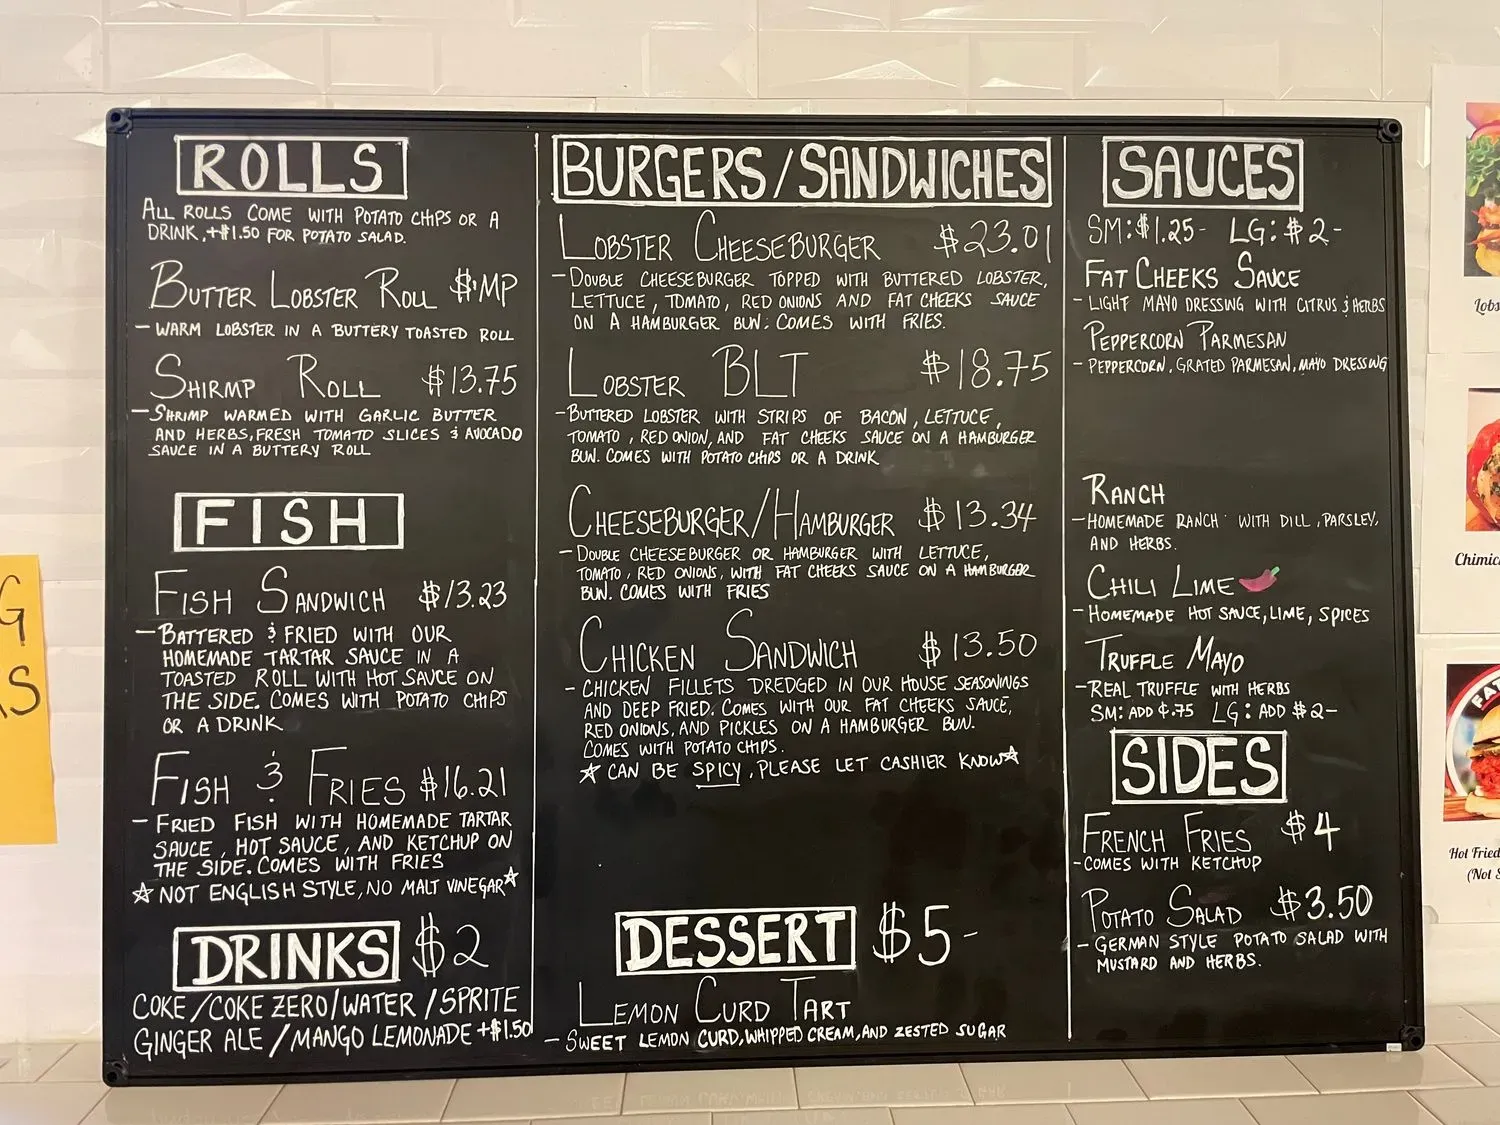 ROLLS
ALL ROLLS COME WITH POTATO CHIPS OR A
DRINK, +$1.50 FOR POTATO SALAD.
BUTTER LOBSTER ROLL $MP
- WARM LOBSTER IN A BUTTERY TOASTED ROLL
SHIRMP ROLL $13.75
- SHRIMP WARMED WITH GARLIC BUTTER
AND HERBS, FRESH TOMATO SLICES & AVOCADO
SAUCE IN A BUTTERY ROLL
FISH
FISH SANDWICH $13.23
- BATTERED & FRIED WITH OUR
HOMEMADE TARTAR SAUCE IN A
TOASTED ROLL WITH HOT SAUCE ON
THE SIDE. COMES WITH POTATO CHIPS
OR A DRINK
FISH & FRIES $16.21
- FRIED FISH WITH HOMEMADE TARTAR
SAUCE, HOT SAUCE, AND KETCHUP ON
THE SIDE. COMES WITH FRIES
☆ NOT ENGLISH STYLE, NO MALT VINEGAR ☆
DRINKS $2
COKE / COKE ZERO / WATER / SPRITE
GINGER ALE / MANGO LEMONADE +$1.50
BURGERS/SANDWICHES
LOBSTER CHEESEBURGER $23.01
- DOUBLE CHEESEBURGER TOPPED WITH BUTTERED LOBSTER,
LETTUCE, TOMATO, RED ONIONS AND FAT CHEEKS SAUCE
ON A HAMBURGER BUN: COMES WITH FRIES.
LOBSTER BLT $18.75
- BUTTERED LOBSTER WITH STRIPS OF BACON, LETTUCE,
TOMATO, RED ONION, AND FAT CHEEKS SAUCE ON A HAMBURGER
BUN. COMES WITH POTATO CHIPS OR A DRINK
CHEESEBURGER/HAMBURGER $13.34
- DOUBLE CHEESEBURGER OR HAMBURGER WITH LETTUCE,
TOMATO, RED ONIONS, WITH FAT CHEEKS SAUCE ON A HAMBURGER
BUN. COMES WITH FRIES
CHICKEN SANDWICH $13.50
- CHICKEN FILLETS DREDGED IN OUR HOUSE SEASONINGS
AND DEEP FRIED. COMES WITH OUR FAT CHEEKS SAUCE,
RED ONIONS, AND PICKLES ON A HAMBURGER BUN.
COMES WITH POTATO CHIPS.
☆ CAN BE SPICY, PLEASE LET CASHIER KNOW ☆
DESSERT $5-
LEMON CURD TART
- SWEET LEMON CURD, WHIPPED CREAM, AND ZESTED SUGAR
SAUCES
SM: $1.25- LG: $2-
FAT CHEEKS SAUCE
- LIGHT MAYO DRESSING WITH CITRUS & HERBS
PEPPERCORN PARMESAN
- PEPPERCORN, GRATED PARMESAN, MAYO DRESSING
RANCH
- HOMEMADE RANCH WITH DILL, PARSLEY,
AND HERBS.
CHILI LIME
- HOMEMADE HOT SAUCE, LIME, SPICES
TRUFFLE MAYO
- REAL TRUFFLE WITH HERBS
SM: ADD ¢.75 LG: ADD $2-
SIDES
FRENCH FRIES $4
- COMES WITH KETCHUP
POTATO SALAD $3.50
- GERMAN STYLE POTATO SALAD WITH
MUSTARD AND HERBS.
G
AS
Lobs
Chimic
FAT
Hot Fried
(Not S